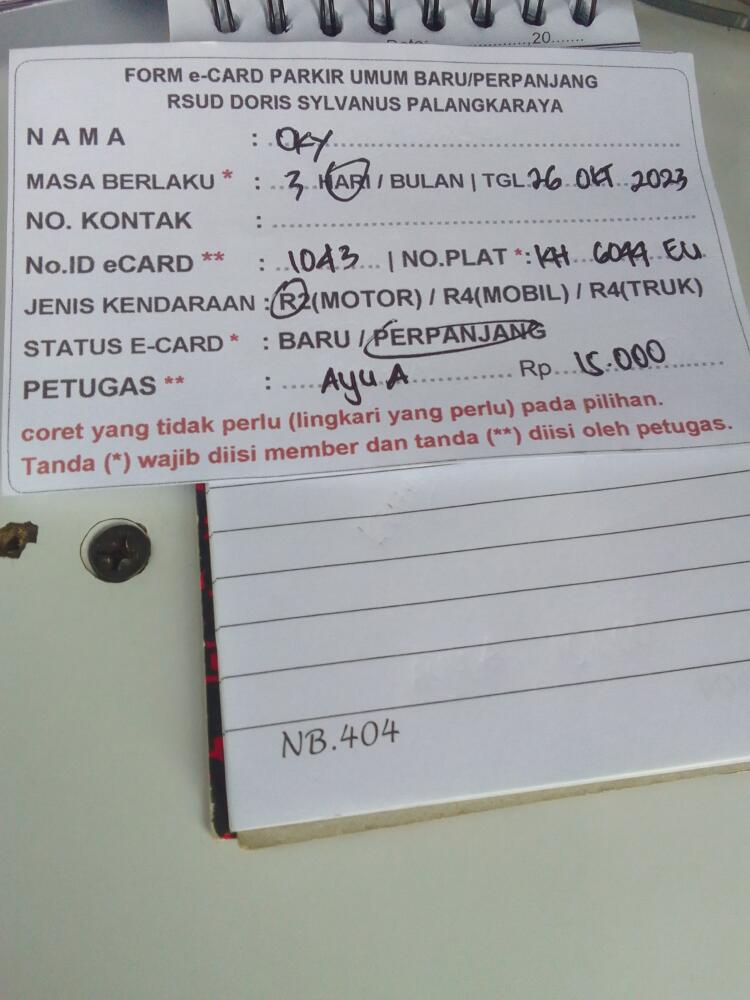 Date: ..............,20.......
FORM e-CARD PARKIR UMUM BARU/PERPANJANG
RSUD DORIS SYLVANUS PALANGKARAYA
NAMA : OKY
MASA BERLAKU * : 3 HARI / BULAN | TGL. 26 OKT 2023
NO. KONTAK :
No.ID eCARD ** : 1043 | NO.PLAT *: KH 6044 EU
JENIS KENDARAAN : R2(MOTOR) / R4(MOBIL) / R4(TRUK)
STATUS E-CARD * : BARU / PERPANJANG
PETUGAS ** : Ayu A Rp 15.000
coret yang tidak perlu (lingkari yang perlu) pada pilihan.
Tanda (*) wajib diisi member dan tanda (**) diisi oleh petugas.
NB.404